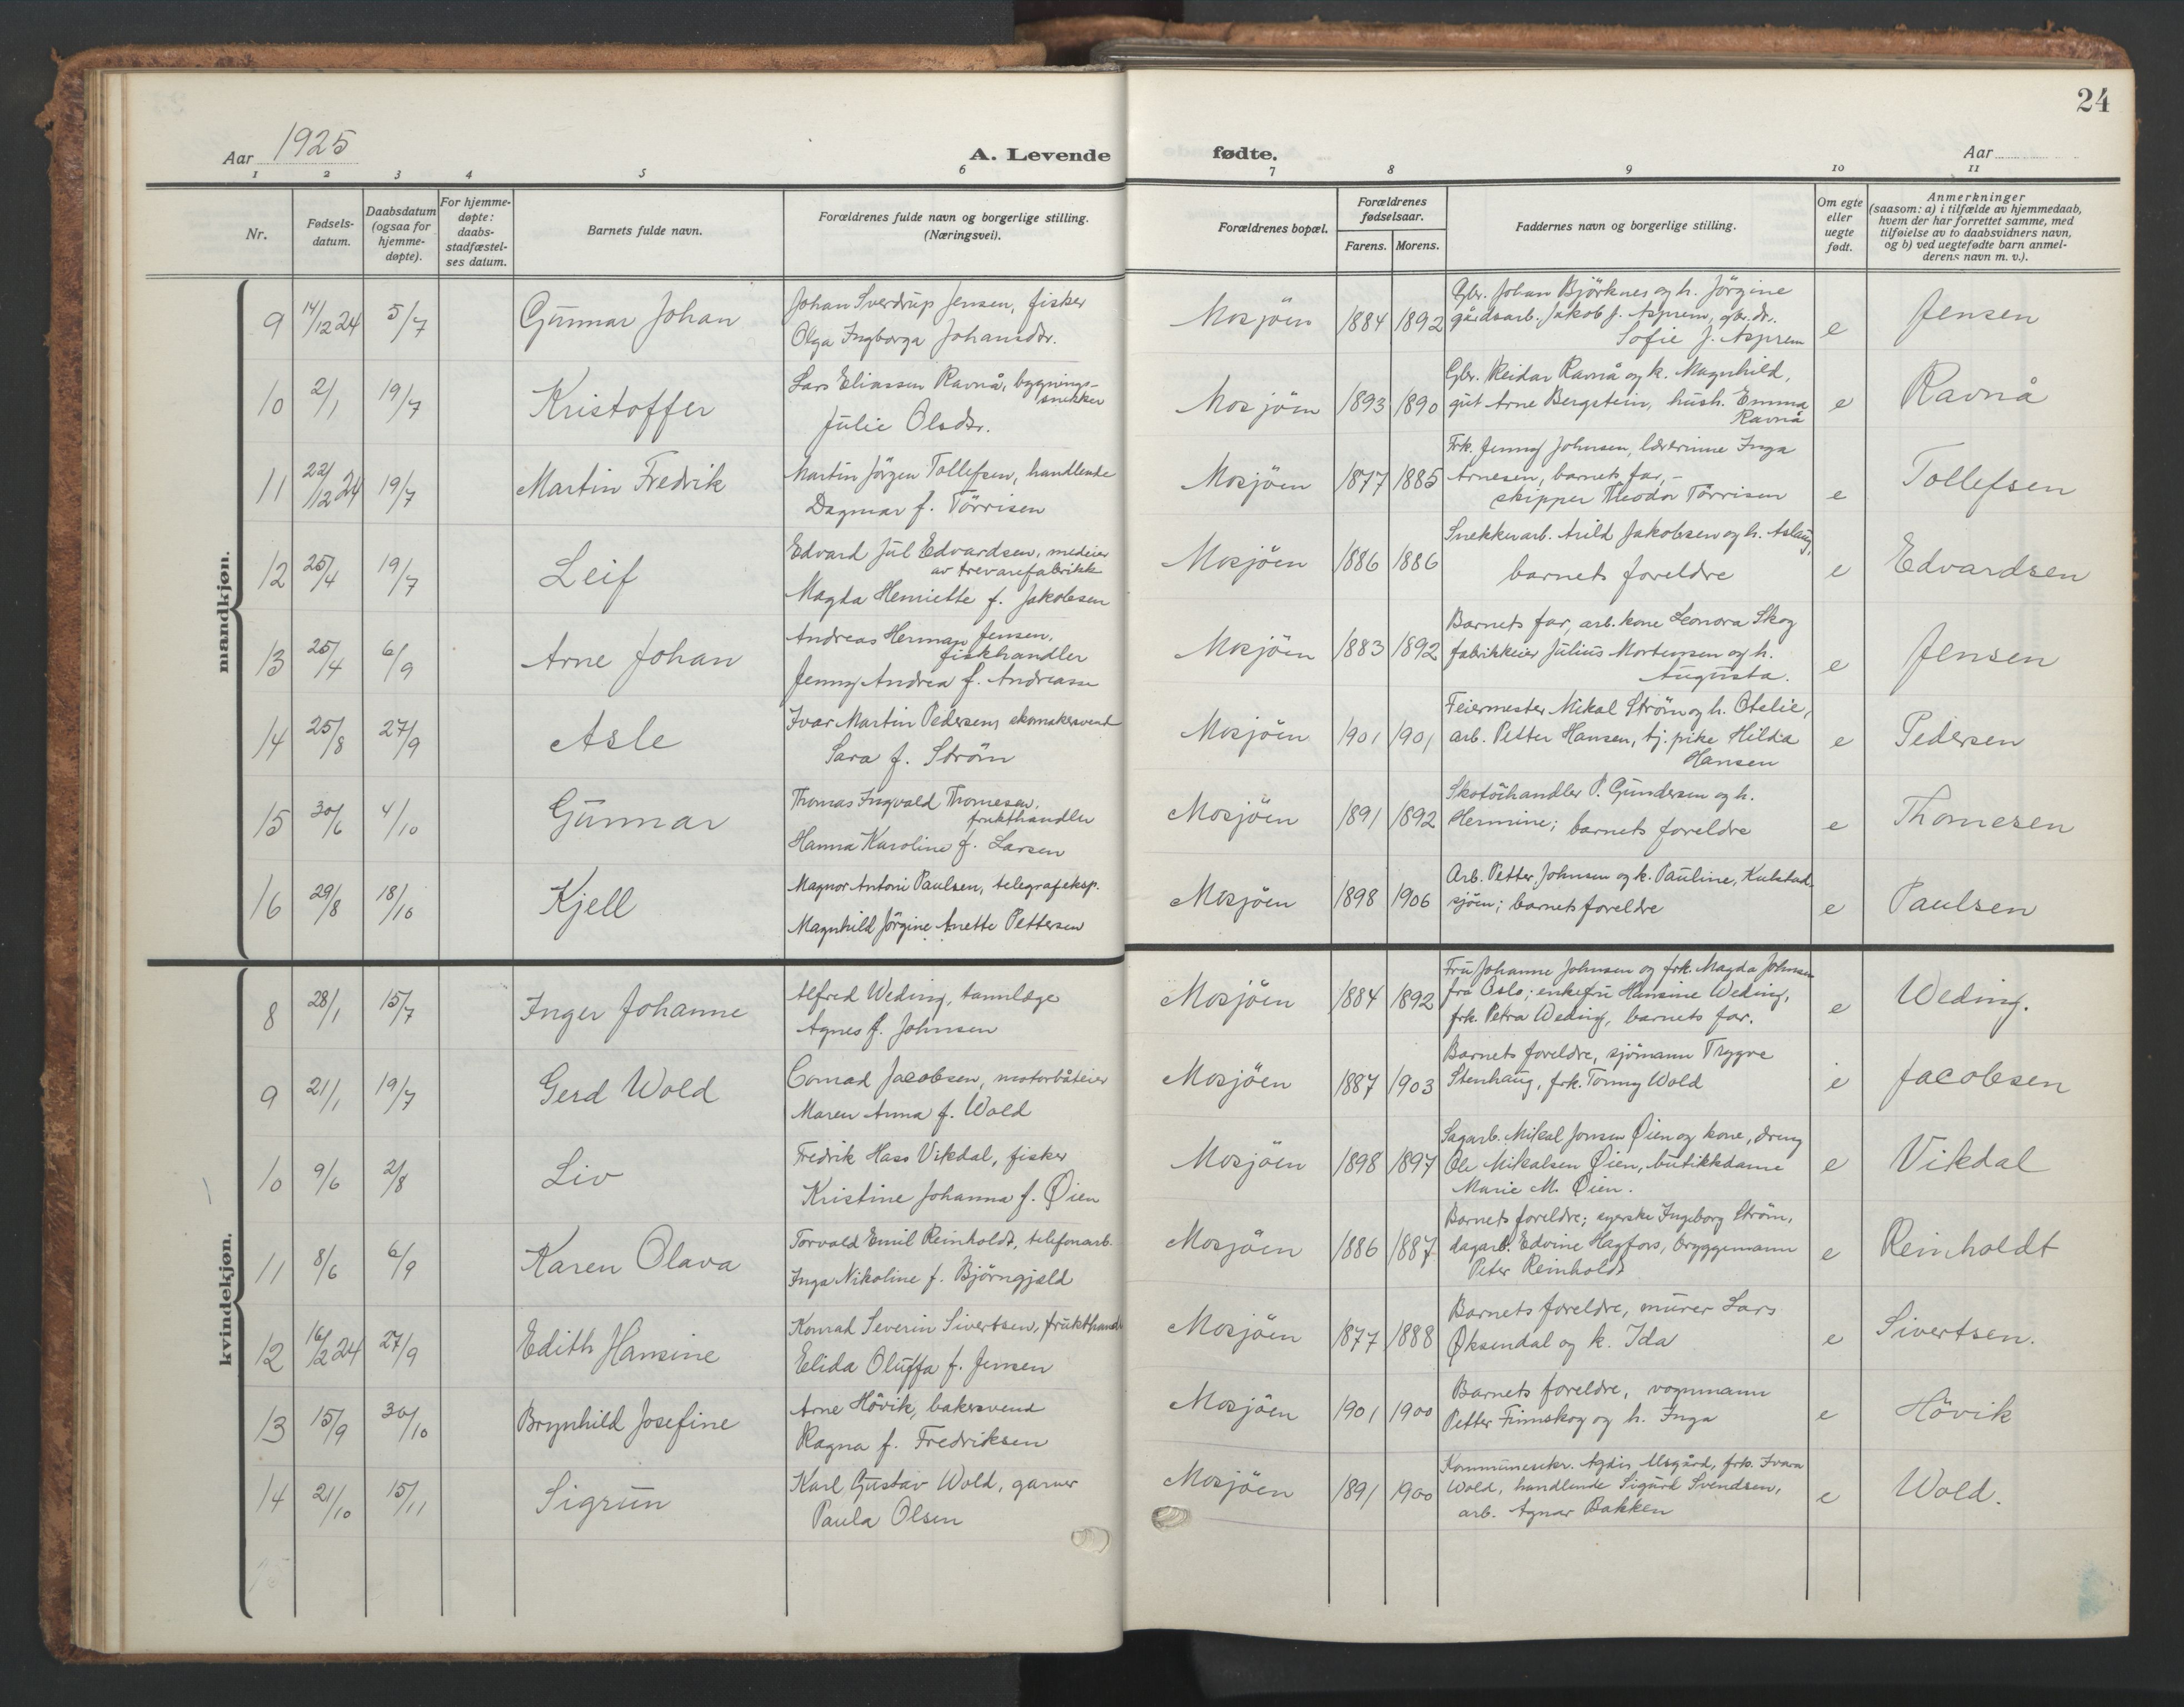 24
Aar 1925
A. Levende
fødte.
Aar
1 2 3 4 5 6 7 8 9 10 11
Nr.
Fødsels-
datum.
Daabsdatum
(ogsaa for
hjemme-
døpte).
For hjemme-
døpte:
daabs-
stadfæstel-
ses datum.
Barnets fulde navn.
Forældrenes fulde navn og borgerlige stilling.
(Næringsvei).
Forældrenes bopæl.
Forældrenes
fødselsaar.
Farens. Morens.
Faddernes navn og borgerlige stilling.
Om egte
eller
uegte
født.
Anmerkninger
(saasom: a) i tilfælde av hjemmedaab,
hvem der har forrettet samme, med
tilføielse av to daabsvidners navn,
og b) ved uegtefødte barn anmel-
derens navn m. v.).
mandkjøn.
9 14/12 24 5/7 Gunnar Johan
Johan Sverdrup Jensen, fisker
Olga Ingborga Johansdtr.
Mosjöen 1884 1892
Gbr. Johan Björknes og h. Jörgine
gårdsarb. Jakob J. Asprem, gbr.dr.
Sofie J. Asprem
e Jensen
10 2/1 19/7 Kristoffer
Lars Eliassen Ravnå, bygnings-
snekker
Julie Olsdtr.
Mosjöen 1893 1890
Gbr. Reidar Ravnå og k. Magnhild,
gut Arne Bergstein, hush. Emma
Ravnå
e Ravnå
11 22/12 24 19/7 Martin Fredrik
Martin Jörgen Tollefsen, handlende
Dagmar f. Törrisen
Mosjöen 1877 1885
Frk. Jenny Johnsen, lærerinne Inga
Arnesen, barnets far, -
skipper Theodor Törrisen
e Tollefsen
12 25/4 19/7 Leif
Edvard Jul Edvardsen, medeier
av trevarefabrikk
Magda Henriette f. Jakobsen
Mosjöen 1886 1886
Snekkerarb. Arild Jakobsen og h. Aslaug,
barnets foreldre
e Edvardsen
13 25/4 6/9 Arne Johan
Andreas Herman Jensen,
fiskhandler
Jenny Andrea f. Andreasse
Mosjöen 1883 1892
Barnets far, arb. kone Leonora Skog
fabrikkeier Julius Mortensen og h.
Augusta.
e Jensen
14 25/8 27/9 Asle
Ivar Martin Pedersen, skomakersvend
Sara f. Ström
Mosjöen 1901 1901
Feiermester Mikal Ström og h. Otelie,
arb. Petter Hansen, tj. pike Hilda
Hansen
e Pedersen
15 30/6 4/10 Gunnar
Thomas Ingvald Thomesen,
frukthandler
Hanna Karoline f. Larsen
Mosjöen 1891 1892
Skotöihandler P. Gundersen og h.
Hermine; barnets foreldre
e Thomesen
16 29/8 18/10 Kjell
Magnor Antoni Paulsen, telegrafeksp.
Magnhild Jörgine Anette Pettersen
Mosjöen 1898 1906
Arb. Petter Johnsen og k. Pauline, Kulstad-
sjöen; barnets foreldre
e Paulsen
kvindekjøn.
8 28/1 15/7 Inger Johanne
Alfred Weding, tannlæge
Agnes f. Johnsen
Mosjöen 1884 1892
Fru Johanne Johnsen og frk. Magda Johnsen
fra Oslo; enkefru Hansine Weding,
frk. Petra Weding, barnets far.
e Weding.
9 21/1 19/7 Gerd Wold
Conrad Jacobsen, motorbåteier
Maren Anna f. Wold
Mosjöen 1887 1903
Barnets foreldre, sjömann Trygve
Stenhaug, frk. Tonny Wold
e Jacobsen
10 9/6 2/8 Liv
Fredrik Hass Vikdal, fisker
Kristine Johanna f. Øien
Mosjöen 1898 1897
Sagarb. Mikal Jonsen Øien og kone, dreng
Ole Mikalsen Øien, butikkdame
Marie M. Øien.
e Vikdal
11 8/6 6/9 Karen Olava
Torvald Emil Reinholdt, telefonarb.
Inga Nikoline f. Björngjæld
Mosjöen 1886 1887
Barnets foreldre; syerske Ingeborg Ström,
dagarb. Edvine Hagfors, bryggemann
Peter Reinholdt
e Reinholdt
12 16/2 24 27/9 Edith Hansine
Konrad Severin Sivertsen, frukthandl
Elida Oluffa f. Jensen
Mosjöen 1877 1888
Barnets foreldre, murer Lars
Øksendal og k. Ida
e Sivertsen.
13 15/9 30/10 Brynhild Josefine
Arne Hövik, bakersvend
Ragna f. Fredriksen
Mosjöen 1901 1900
Barnets foreldre, vognmann
Petter Finnskog og h. Inga
e Hövik
14 21/10 15/11 Sigrun
Karl Gustav Wold, garver
Paula Olsen
Mosjöen 1891 1900
Kommunesekr. Agdis Alsgård, frk. Ivara
Wold, handlende Sigurd Svendsen,
arb. Agnar Bakken
e Wold.
15